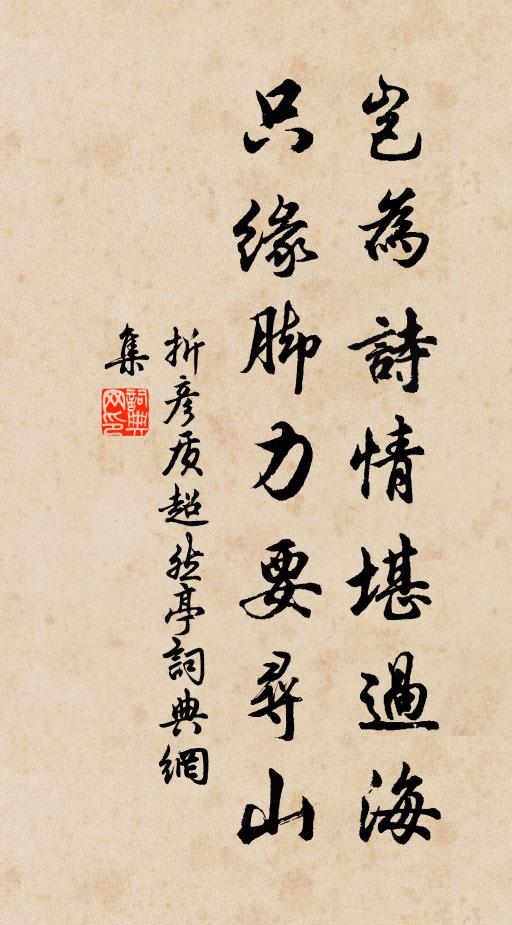 豈為詩情堪過海
只緣脚力要尋山
折彥质超然亭詞典網
集
詞典
网印